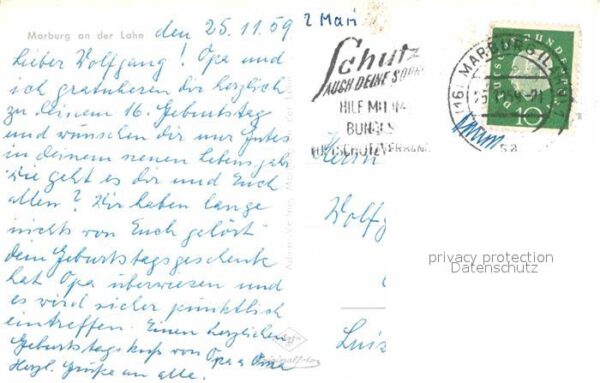 Marburg an der Lahn
den 25.11.59
2 Mari
Lieber Wolfgang! Opa und
ich gratulieren dir herzlich
zu deinem 16. Geburtstag
und wünschen dir nur Gutes
in deinem neuen Lebensjahr
Wie geht es dir und Euch
allen? Wir haben lange
nichts von Euch gehört
dem Geburtstagsgeschenke
hat Opa überwiesen und
es wird sicher pünktlich
eintreffen. Einen herzlichen
Geburtstagskuß von Opa u Oma
Herzl. Grüße an alle.
Schutz
AUCH DEINE SORGE
HILF MIT IM
BUNDES
LUFTSCHUTZVERBAND
(16) MARBURG (LAHN)
DEUTSCHE BUNDESPOST
10
Herrn
Wolfg
Luis
privacy protection
Datenschutz